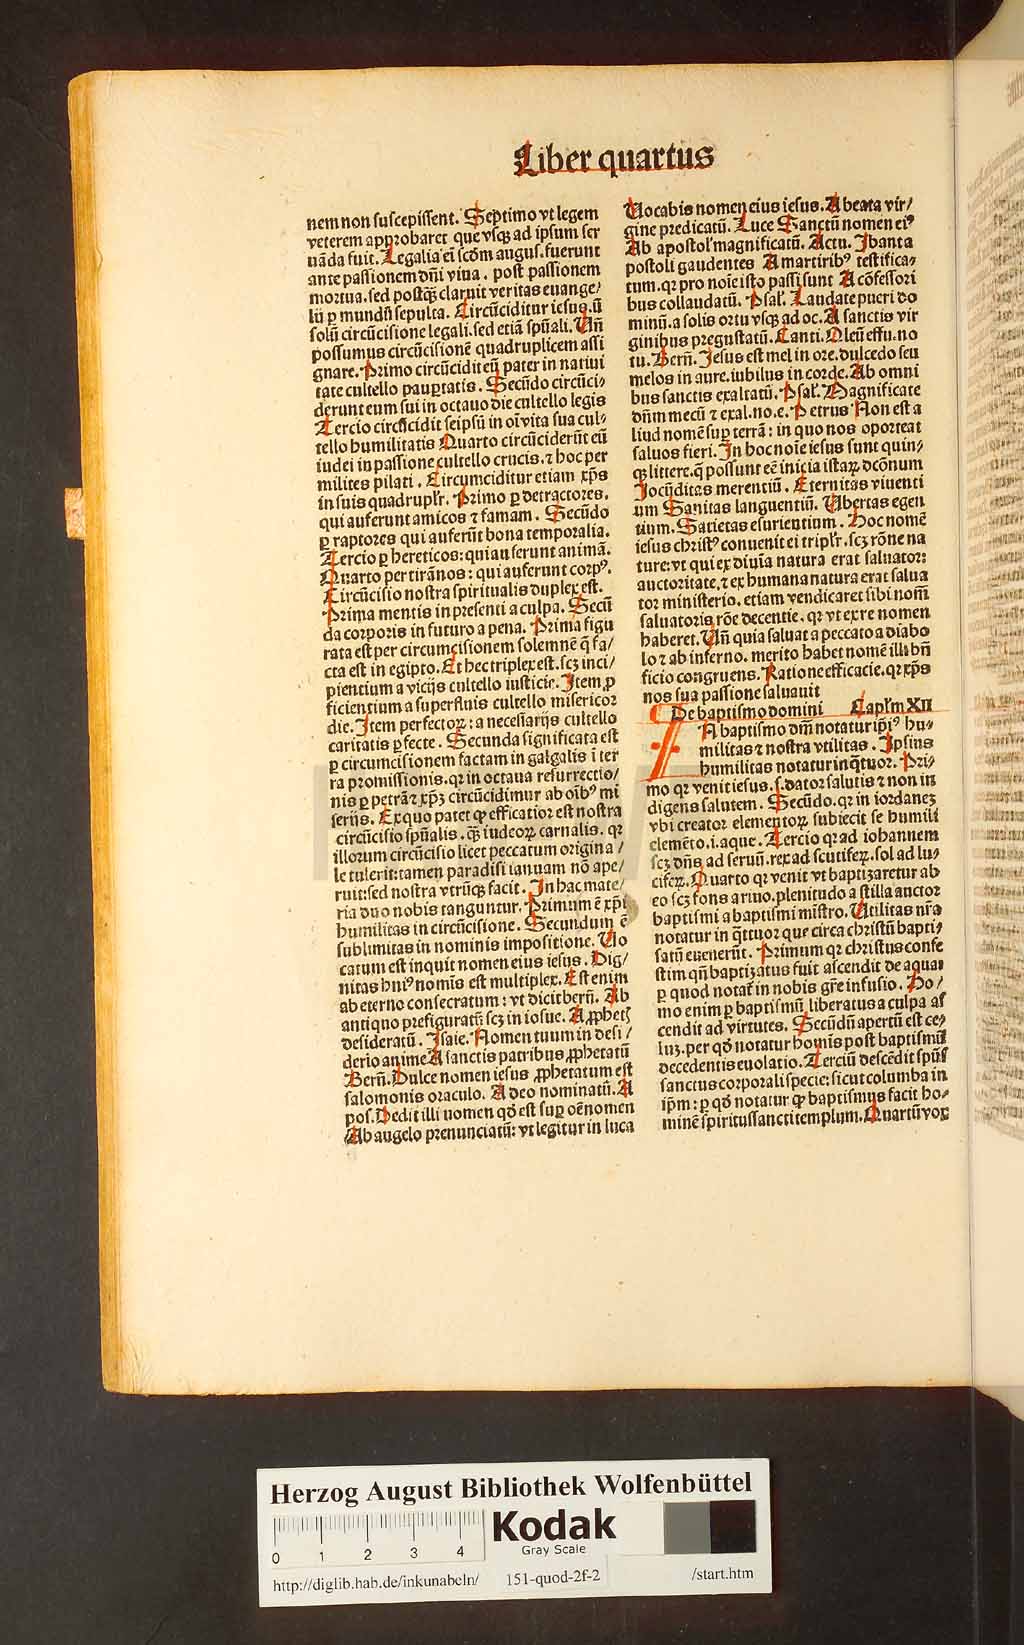 Liber quartus
nem non suscepissent. Septimo vt legem
veterem approbaret que vsqꝫ ad ipsum ser
uãda fuit. Legalia eĩ scḋm augus. fuerunt
ante passionem dñi viua. post passionem
mortua. sed postq̃ꝫ claruit veritas euange/
lii ꝑ mundũ sepulta. Circũciditur iesus. ñ
solũ circũcisione legali. sed etiã spũali. Uñ
possumus circũcisionẽ quadruplicem assi
gnare. Primo circũcidit eũ pater in natiui
tate cultello paupertatis. Secũdo circũci⸗
derunt eum sui in octauo die cultello legis
Tercio circũcidit seipsũ in oĩ vita sua cul⸗
tello humilitatis Quarto circũciderũt eũ
iudei in passione cultello crucis. ⁊ hoc per
milites pilati. Circumciditur etiam xp̃s
in suis quadrupl'r. Primo ꝑ detractores.
qui auferunt amicos ⁊ famam. Secũdo
ꝑ raptores qui auferũt bona temporalia.
Tercio ꝑ hereticos: qui auferunt animã.
Quarto per tirãnos: qui auferunt corpꝰ.
Circũcisio nostra spiritualis duplex est.
Prima mentis in presenti a culpa. Secũ
da corporis in futuro a pena. Prima figu
rata est per circumcisionem solemnẽ q̃ fa/
cta est in egipto. Et hec triplex est. scꝫ inci/
pientium a vicijs cultello iusticie. Item ꝓ
ficientium a superfluis cultello misericor
die. Item perfectoꝝ: a necessarijs cultello
caritatis ꝑfecte. Secunda significata est
ꝑ circumcisionem factam in galgalis ĩ ter
ra promissionis. qr in octaua resurrectio/
nis ꝑ petrã ⁊ xp̃ꝫ circũcidimur ab oĩbꝰ mi
serijs. Ex quo patet ꝙ efficatior est nostra
circũcisio spũalis. q̃ꝫ iudeoꝝ carnalis. qr
illorum circũcisio licet peccatum origina/
le tulerit: tamen paradisi ianuam nõ ape/
ruit: sed nostra vtrũqꝫ facit. In hac mate/
ria duo nobis tanguntur. Primum ẽ xp̃i
humilitas in circũcisione. Secundum ẽ
sublimitas in nominis impositione. Uo
catum est inquit nomen eius iesus. Dig/
nitas hꝰ nomis est multiplex. Est enim
ab eterno consecratum: vt dicit berñ. Ab
antiquo prefiguratũ: scꝫ in iosue. A ꝓphetꝫ
desideratũ. Isaie. Nomen tuum in desi/
derio anime A sanctis patribus ꝓphetatũ
Berñ. Dulce nomen iesus ꝓphetatum est
salomonis oraculo. A deo nominatũ. A
pos. Dedit illi nomen qḋ est suꝑ oẽ nomen
Ab angelo prenunciatũ: vt legitur in luca
Uocabis nomen eius iesus. A beata vir/
gine predicatũ. Luce Sanctũ nomen eiꝰ
Ab apostol' magnificatũ. Actu. Ibant a
postoli gaudentes A martiribꝰ testifica⸗
tum. qr pro noĩe isto passi sunt A cõfessori
bus collaudatũ. Psal'. Laudate pueri do
minũ. a solis ortu vsqꝫ ad oc. A sanctis vir
ginibus pregustatũ. Canti. Oleũ effu. no
tu. Berñ. Jesus est mel in ore. dulcedo seu
melos in aure. iubilus in corde. Ab omni
bus sanctis exaltatũ. Psal'. Magnificate
dñm mecũ ⁊ exal. no. e. Petrus Non est a
liud nomẽ suꝑ terrã: in quo nos oporteat
saluos fieri. In hoc noĩe iesus sunt quin⸗
qꝫ littere. q̃ possunt eẽ inicia istaꝝ dcõnum
Jocũditas merentiũ. Eternitas viuenti
um Sanitas languentiũ. Ubertas egen
tium. Satietas esurientium. Hoc nomẽ
iesus christꝰ conuenit ei tripl'r. scꝫ rõne na
ture: vt qui ex diuĩa natura erat saluator:
auctoritate. ⁊ ex humana natura erat salua
tor ministerio. etiam vendicaret sibi nom̃
saluatoris rõe decentie. qr vt ex re nomen
haberet. Uñ quia saluat a peccato a diabo
lo ⁊ ab inferno. merito habet nomẽ illi bñ
ficio congruens. Ratione efficacie. qr xp̃s
nos sua passione saluauit
De baptismo domini Capl'm XII
A baptismo dom̃ notatur ip̃iꝰ hu⸗
militas ⁊ nostra vtilitas. Ipsius
humilitas notatur in q̃tuor. Pri⸗
mo qr venit iesus. s. dator salutis ⁊ non in
digens salutem. Secũdo. qr in iordaneꝫ
vbi creator elementoꝝ subiecit se humili
elemẽto. i. aque. Tercio qr ad iohannem
scꝫ dñs ad seruũ. rex ad scutifeꝝ. sol ad lu⸗
cifeꝝ. Quarto qr venit vt baptizaretur ab
eo scꝫ fons a riuo. plenitudo a stilla auctor
baptismi a baptismi mĩstro. Utilitas nr̃a
notatur in q̃ttuor que circa christũ bapti⸗
satũ euenerũt. Primum qr christus confe
stim qñ baptizatus fuit ascendit de aqua:
ꝑ quod notat̃ in nobis gr̃e infusio. Ho/
mo enim ꝑ baptismũ liberatus a culpa as
cendit ad virtutes. Secũdũ apertũ est ce⸗
luꝫ. per qḋ notatur homĩs post baptismũ
decedentis euolatio. Terciũ descẽdit spũs̃
sanctus corporali specie: sicut columba in
ip̃m: ꝑ qḋ notatur ꝙ baptismus facit ho⸗
minẽ spiritussancti templum. Quartũ vox
Herzog August Bibliothek Wolfenbüttel
0 1 2 3 4
Kodak
Gray Scale
http://diglib.hab.de/inkunabeln/ 151-quod-2f-2 /start.htm